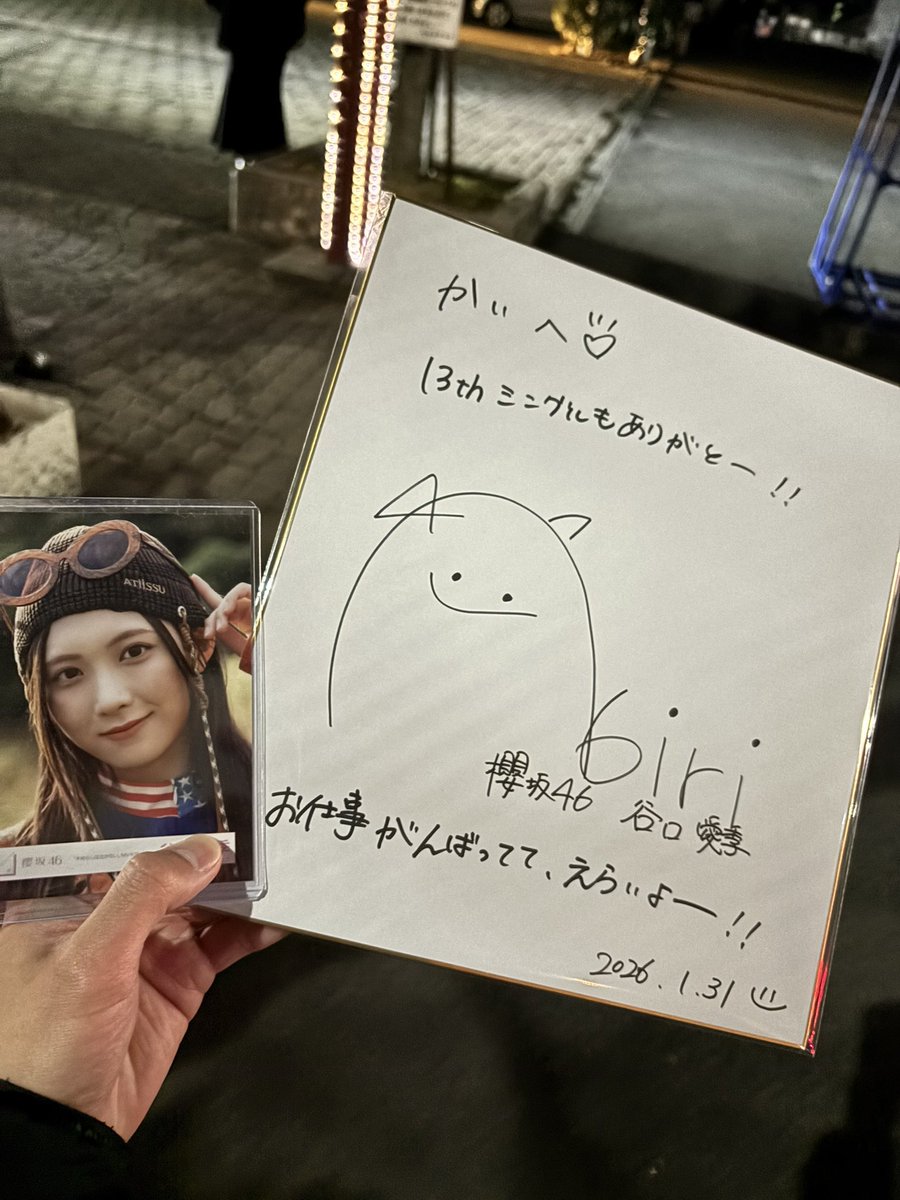 かぃへ
13thシングルもありがとー!!
6iri
櫻坂46
谷口 愛季
お仕事がんばってて、えらぃよー!!
2026.1.31
ATIISSU
櫻坂46